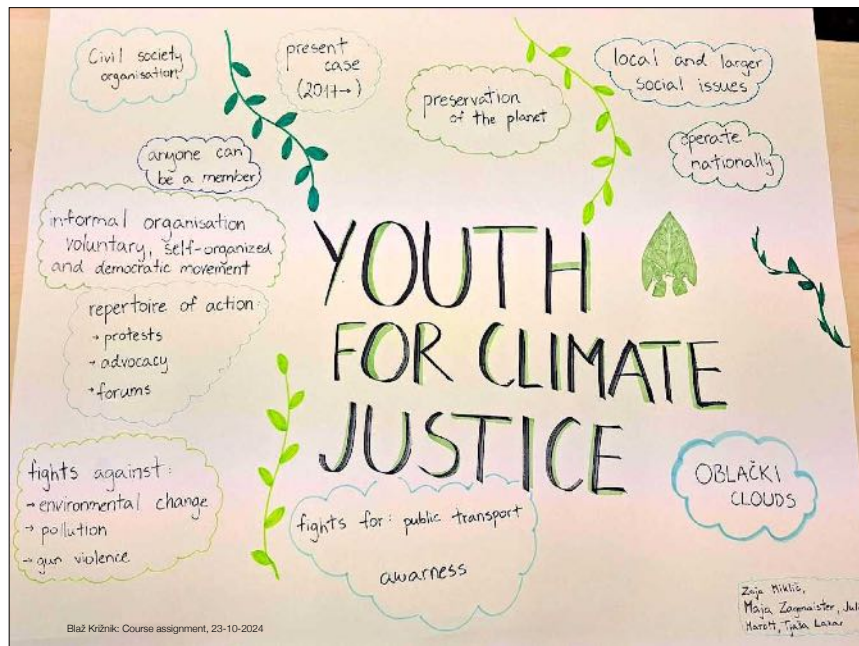 Civil society
organisation
present
case
(2017→)
preservation
of the planet
local and larger
social issues
operate
nationally
anyone can
be a member
informal organisation
voluntary, self-organized
and democratic movement
repertoire of action:
→ protests
→ advocacy
→ forums
YOUTH
FOR CLIMATE
JUSTICE
fights against:
→ environmental change
→ pollution
→ gun violence
fights for: public transport
awarness
OBLAČKI
CLOUDS
Zoja Mikliš,
Maja Zagmaister,
Tjaša Lazar
Blaž Križnik: Course assignment, 23-10-2024